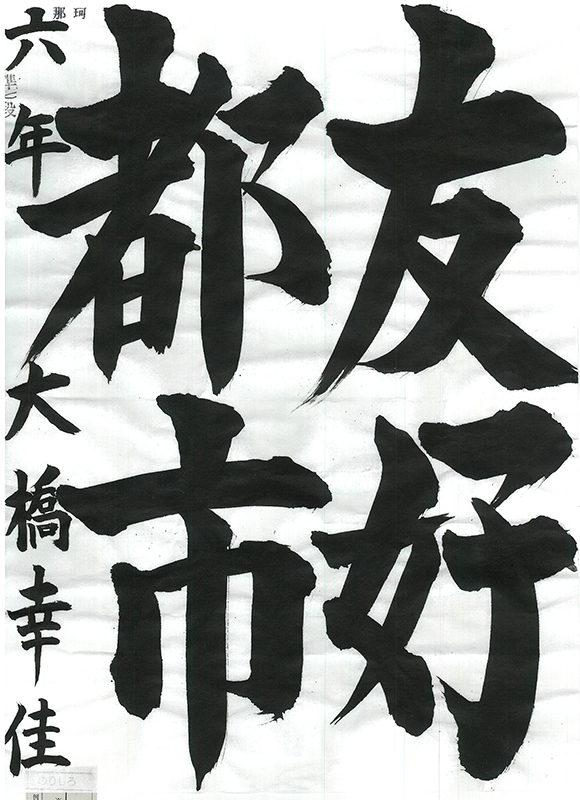 友好
都市
六年 大橋幸佳
那珂
準二段
のりしろ